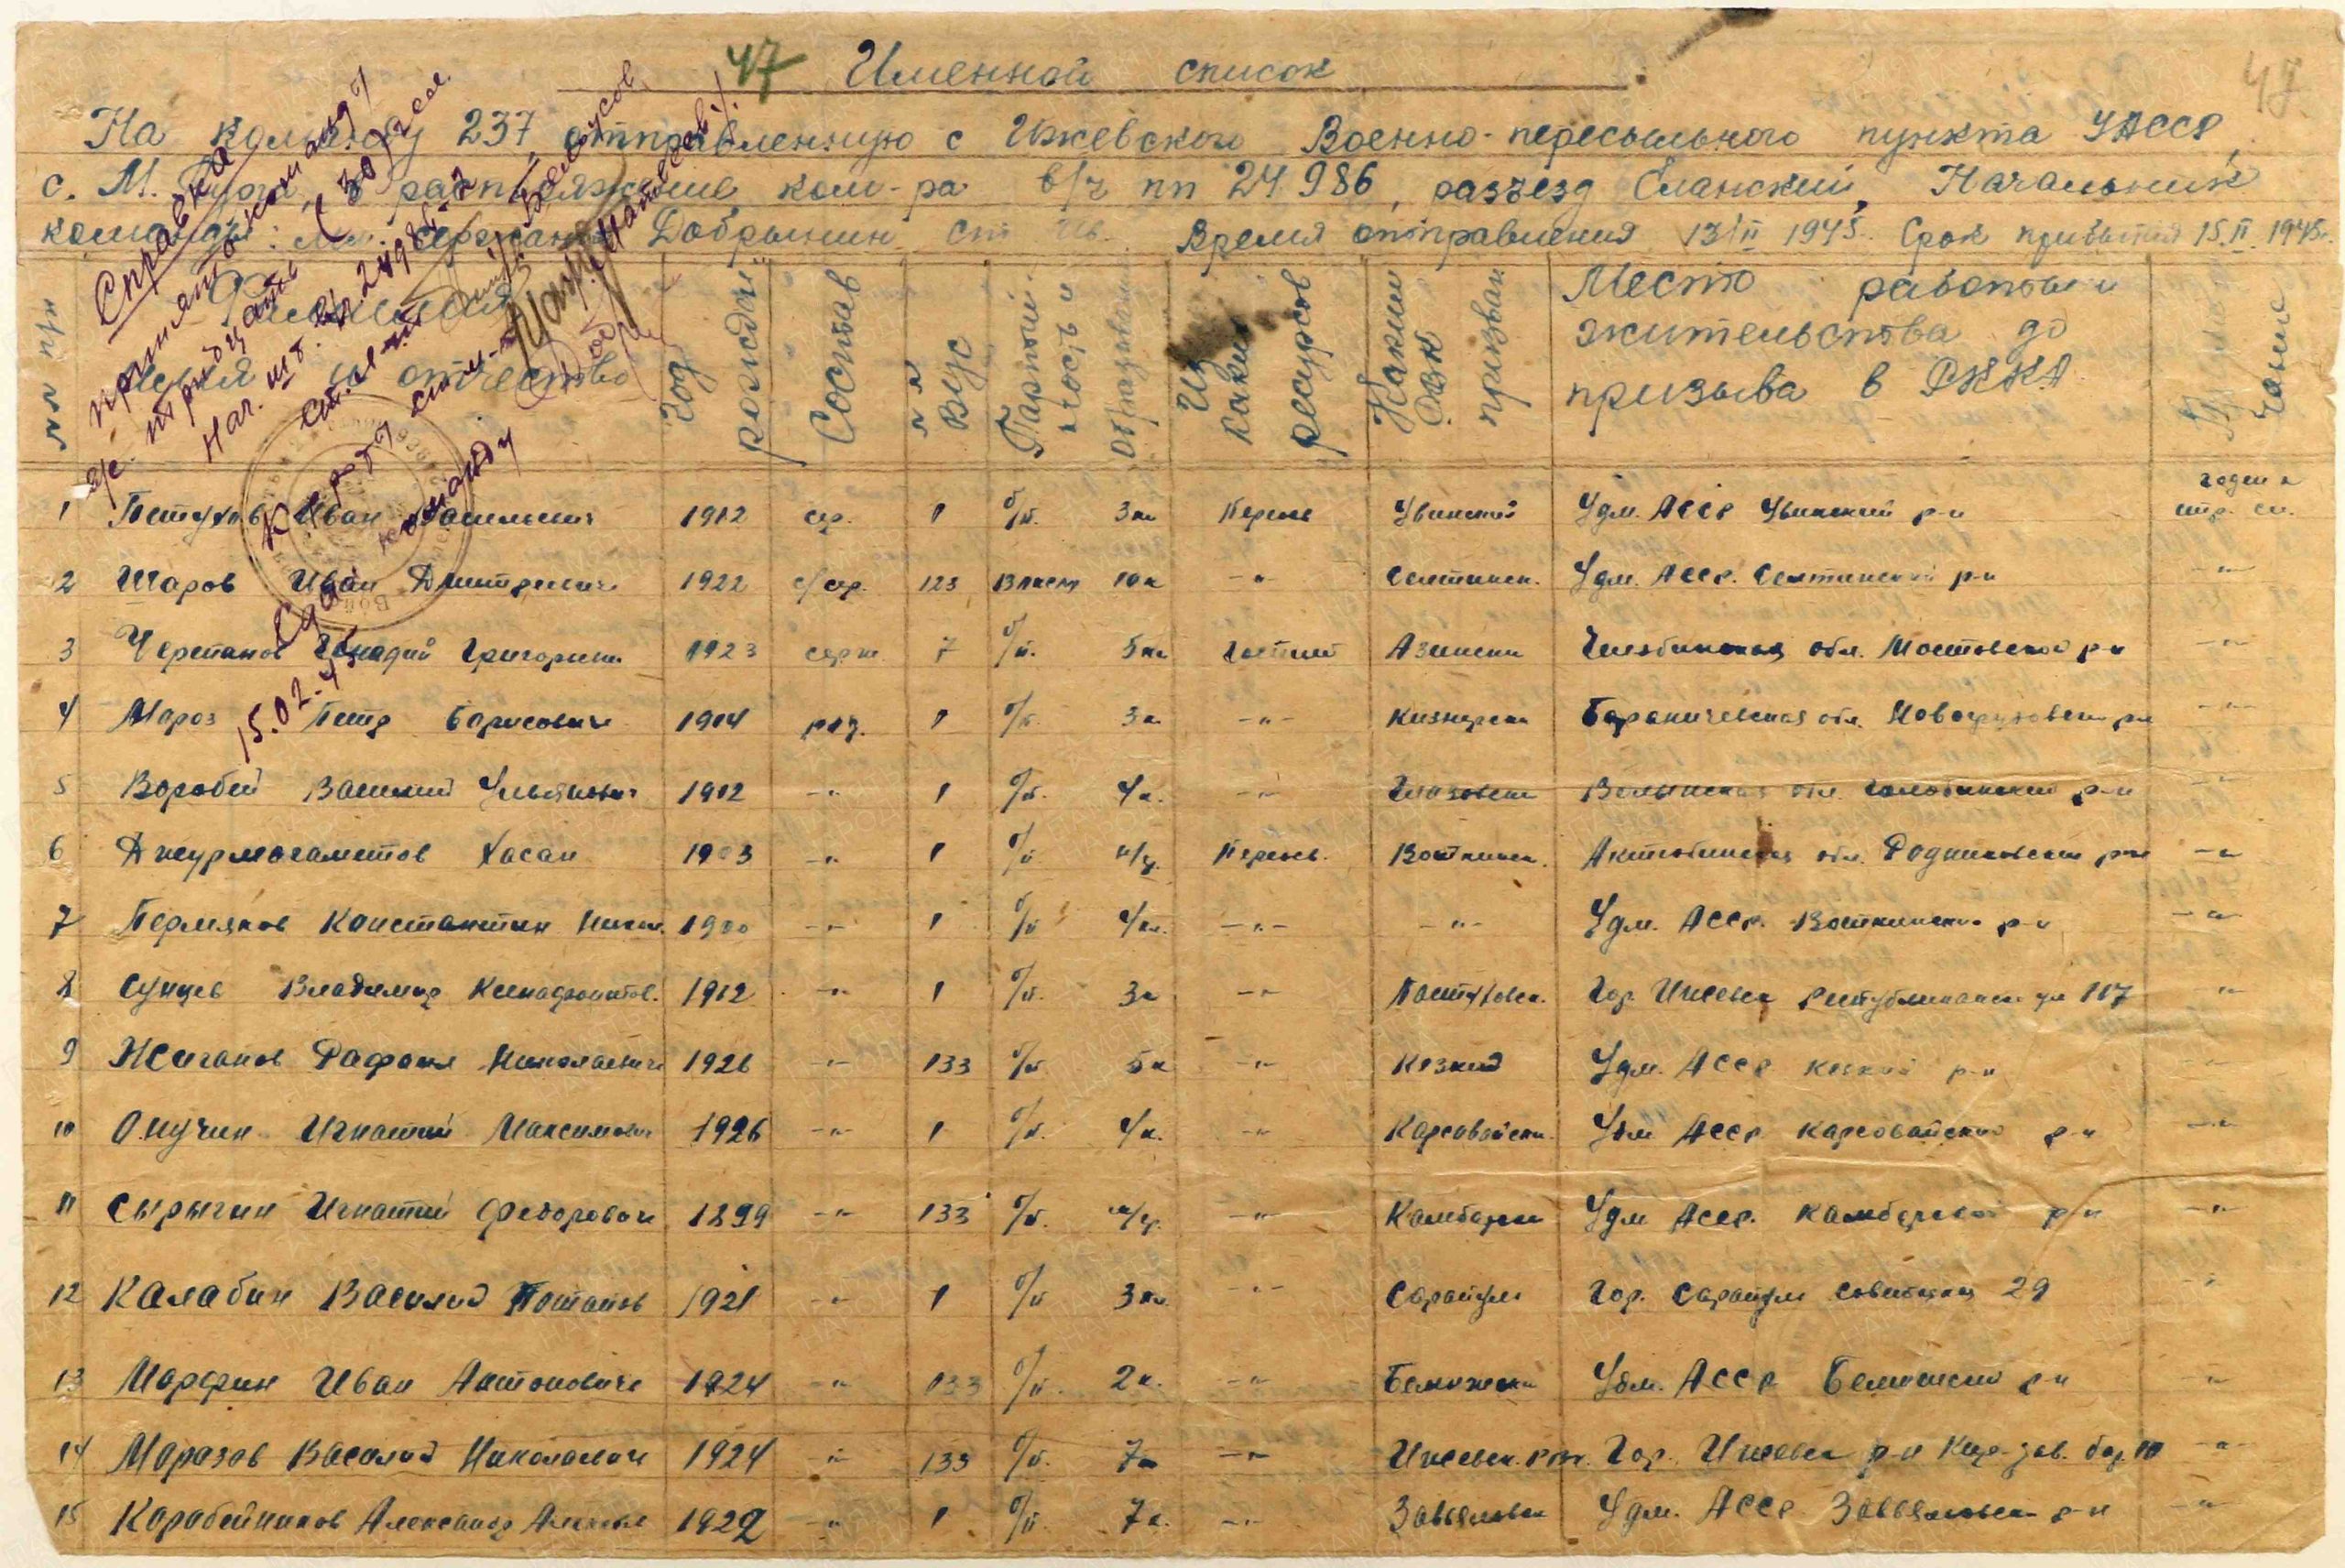 47 Именной список
На команду 237, отправленную с Ижевского Военно-пересыльного пункта УАССР,
с. М. Пурга, в распоряжение ком-ра в/ч пп 24986, разъезд Еланский, Начальник
команды: мл. сержант Добрынин Время отправления 13/II 1945. Срок прибытия 15.II 1945г.
Справка
принято команду
тридцать (30) чел
Нач. шт. 24986
Белоусов
Карт
команду
Сдал
15.02.45
№№ п/п
Фамилия
имя и отчество
Год рождения
Состав
№№ ВУС
Партийность и
образование
Из каких ресурсов
Каким РВК призван
Место работы и
жительства до
призыва в РККА
Примечание
1 Петухов Иван Васильевич 1912 сер. 1 б/п. 3кл Перев Увинский Удм. АССР Увинский р-н годен к стр. сл.
2 Шаров Иван Дмитриевич 1922 с/сер. 123 Влксм 10к -"- Селтинск. Удм. АССР. Селтинский р-н -"-
3 Черепанов Генадий Григорьевич 1923 серж 7 б/п. 5кл Азински Челябинская обл. Мостовской р-н -"-
4 Мороз Петр Борисович 1904 ряд. 1 б/п. 3к. -"- Кизнерски Барановичевская обл. р-н -"-
5 Воробей Василий Ульянович 1912 -"- 1 б/п. 4к. -"- Глазовски Волынская обл. р-н -"-
6 Джурмогаметов Хасан 1903 -"- 1 б/п н/г. Перев. Воткинск. Актюбинская обл. Родниковски р-н -"-
7 Пермяков Константин Никол. 1900 -"- 1 б/п 4кл. -"- -"- Удм. АССР. Воткински р-н -"-
8 Сунцев Владимир Ксенофонтов. 1912 -"- 1 б/п. 3к -"- Пастуховск. Гор. Ижевск Республиканск ул 117 -"-
9 Жиганов Рафаил Николаевич 1926 -"- 133 б/п 5к -"- Кезкий Удм. АССР Кезкий р-н -"-
10 Опучин Игнатий Максимович 1926 -"- 1 б/п. 4к. -"- Карсовайски. Удм АССР Карсовайский р-н -"-
11 Сырыгин Игнатий Федорович 1899 -"- 133 б/п. н/г. -"- Камбарски Удм АССР. Камбарский р-н -"-
12 Калабин Василий Потапов 1921 -"- 1 б/п 3кл. -"- Сарапул Гор. Сарапул Советская 29 -"-
13 Марфин Иван Антонович 1924 -"- 133 б/п. 2к. -"- Бемыжски Удм. АССР Бемыжский р-н -"-
14 Морозов Василий Николаевич 1924 -"- 133 б/п. 7к -"- Ижевск. Гор. Ижевск р-н Кир-зав. бар 10 -"-
15 Коробейников Александр 1922 -"- 1 б/п. 7к. -"- Завьяловск Удм. АССР Завьяловски р-н -"-